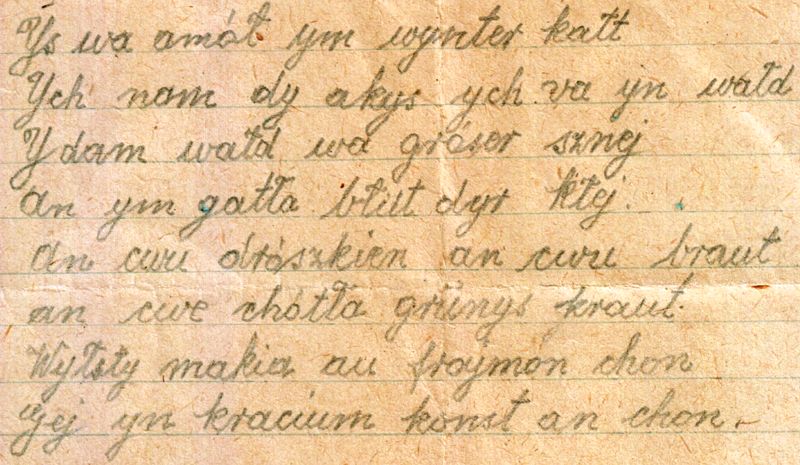 Ys wa amół ym wynter kałt
Ych nam dy akys ych va yn wałd
Y dam wałd wa gróser sznej
an ym gatła błüt dyr kłej.
an cwu drószkien an cwu braut
an cwe chótła grünys kraut.
Wyłsty makia au frojmón chon
Gej yn kracium konst an chon.